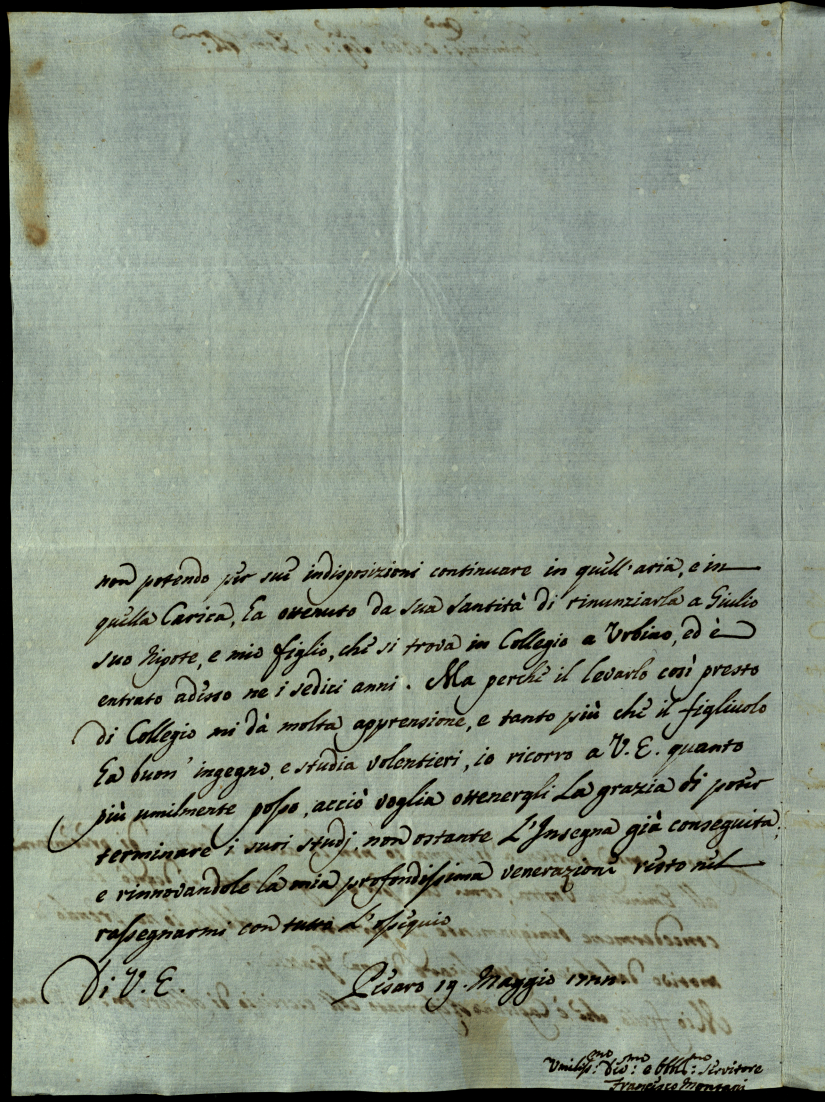 non potendo per sue indisposizioni continuare in quell'aria, e in
quella Carica, ha ottenuto da sua Santità di rinunziarla a Giulio
suo Nipote, e mio figlio, che si trova in Collegio a Urbino, ed è
entrato adesso ne i sedici anni. Ma perchè il levarlo così presto
di Collegio mi dà molta apprensione, e tanto più che il figliuolo
ha buon' ingegno, e studia volentieri, io ricorro a V. E. quanto
più umilmente posso, acciò voglia ottenergli la grazia di poter
terminare i suoi studj, non ostante l'Insegna già conseguita;
e rinnovandole la mia profondissima venerazione resto nel
rassegnarmi con tutto l'ossequio
Di V. E. Pesaro 19. Maggio
Umiliss:mo Div:mo e Obbl:mo Servitore
Francesco Montani